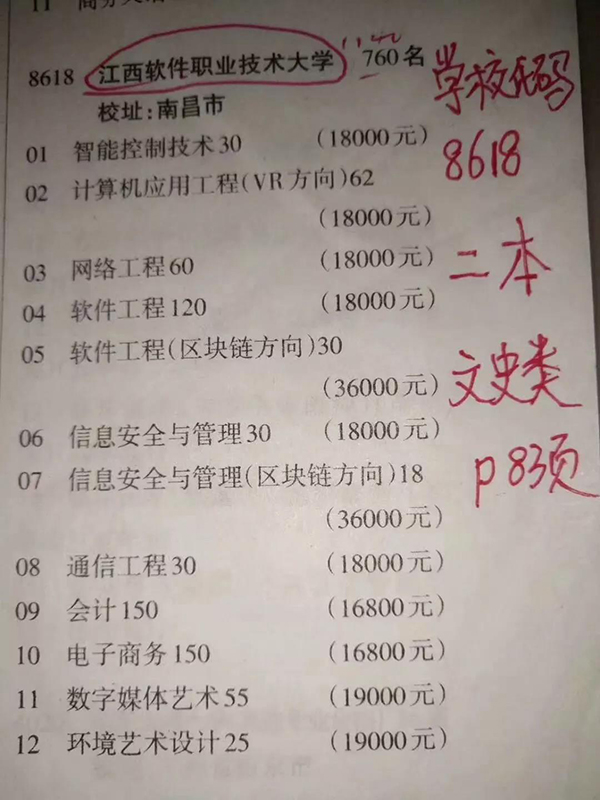 8618 江西软件职业技术大学 760名
校址:南昌市
01 智能控制技术30 (18000元)
02 计算机应用工程(VR方向)62
(18000元)
03 网络工程60 (18000元)
04 软件工程120 (18000元)
05 软件工程(区块链方向)30
(36000元)
06 信息安全与管理30 (18000元)
07 信息安全与管理(区块链方向)18
(36000元)
08 通信工程30 (18000元)
09 会计150 (16800元)
10 电子商务150 (16800元)
11 数字媒体艺术55 (19000元)
12 环境艺术设计25 (19000元)
学校代码
8618
二本
文史类
p83页